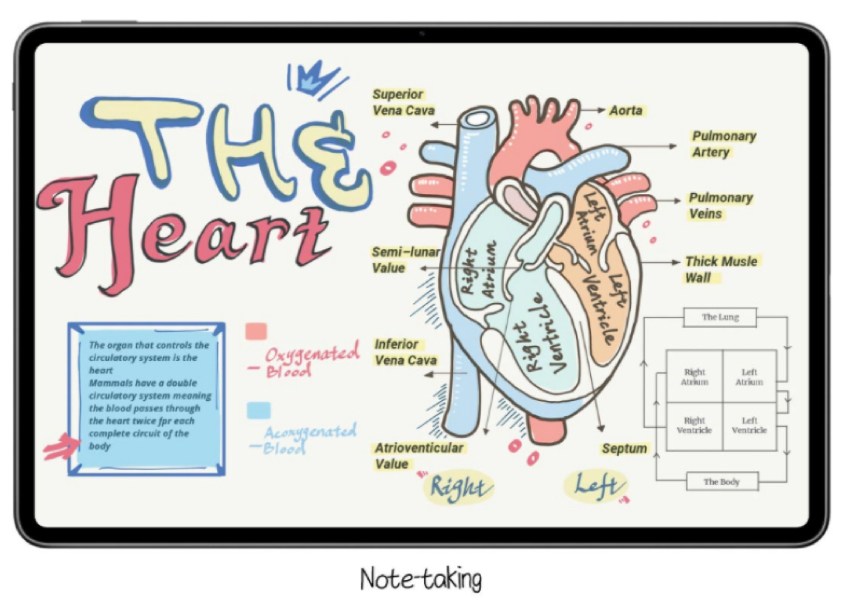 THE
Heart
The organ that controls the
circulatory system is the
heart
Mammals have a double
circulatory system meaning
the blood passes through
the heart twice fpr each
complete circuit of the
body
Oxygenated
Blood
Aeoxygenated
Blood
Superior
Vena Cava
Semi-lunar
Value
Inferior
Vena Cava
Atrioventicular
Value
Right
Atrium
Right
Ventricle
Left
Atrium
Left
Ventricle
Aorta
Pulmonary
Artery
Pulmonary
Veins
Thick Musle
Wall
Septum
Right
Left
The Lung
Right
Atrium
Left
Atrium
Right
Ventricle
Left
Ventricle
The Body
Note-taking